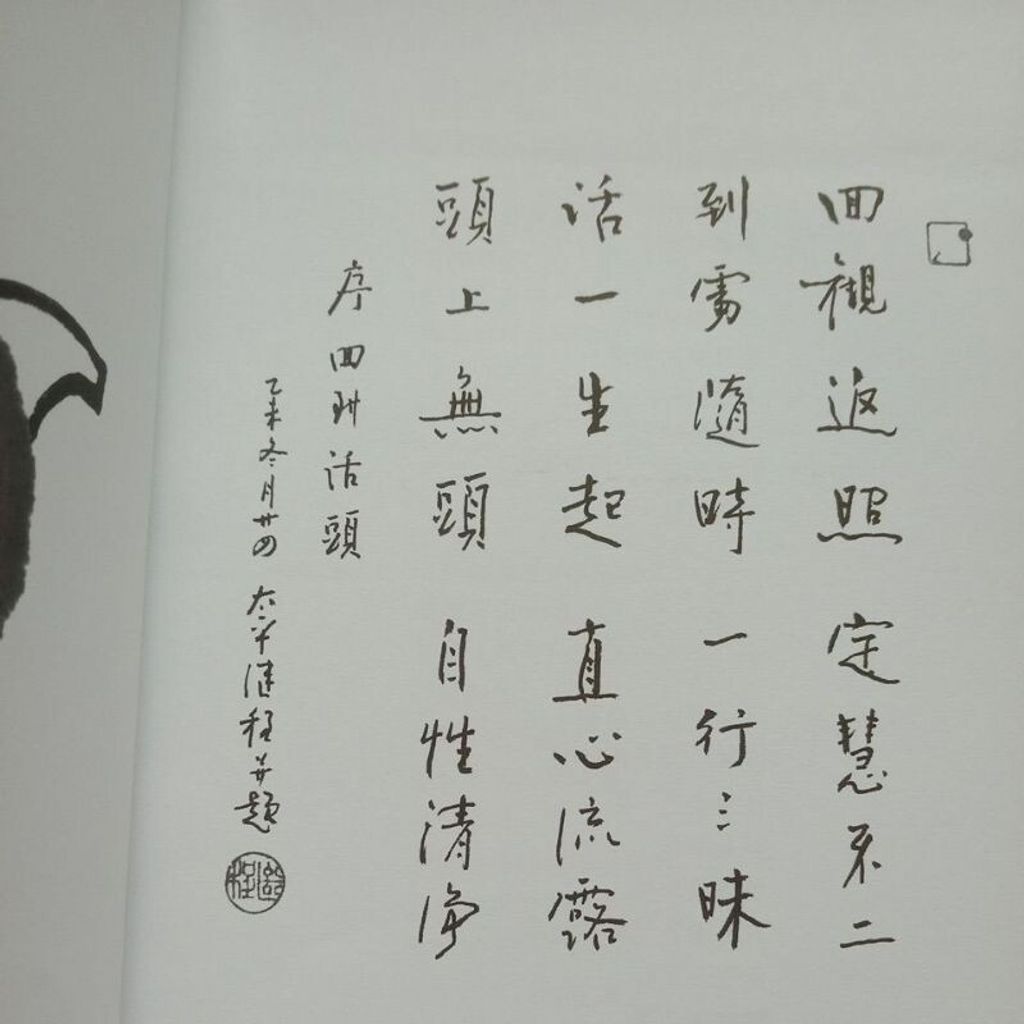 回觀返照 定慧不二
到處隨時 一行三昧
話一生起 直心流露
頭上無頭 自性清淨
序回到話頭
乙未冬月廿四 太平繼程并題